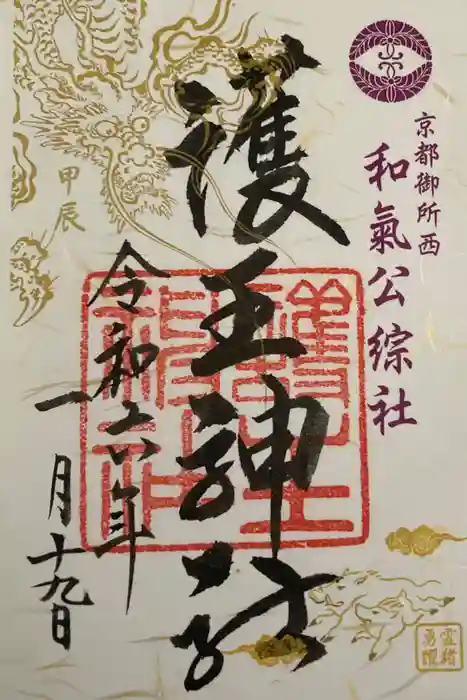 京都御所西
和氣公綜社
護王神社
令和六年
一月十九日
甲辰
靈猪
勇躍
護王
神社